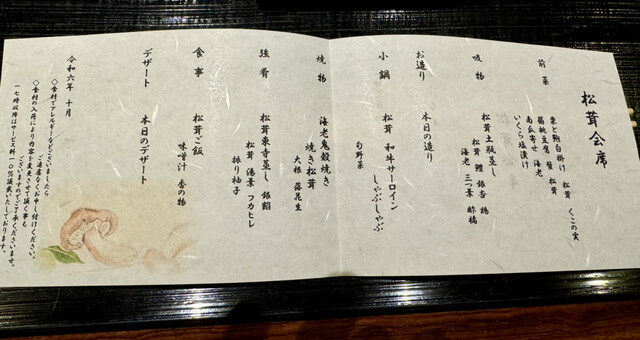 松茸会席
前菜
栗と鞠白掛け 松茸 くこの実
胡桃豆腐 蟹 松茸
南瓜寄せ 海老
いくら塩漬け
吸物
松茸土瓶蒸し
松茸 鱧 銀杏 鶏
海老 三つ葉 酢橘
お造り
本日の造り
小鍋
松茸 和牛サーロイン
しゃぶしゃぶ
旬野菜
焼物
海老鬼殻焼き
焼き松茸
大根 落花生
強肴
松茸東寺蒸し 銀餡
松茸 湯葉 フカヒレ
振り柚子
食事
松茸ご飯
味噌汁 香の物
デザート
本日のデザート
令和六年 十月
◇食材でアレルギーなどございましたら
ご遠慮なくお申し付けください。
◇食材の入荷により内容を変更させて頂く事も
ございますのでご了承くださいませ。
一七時以降はサービス料一〇%頂戴いたしております。